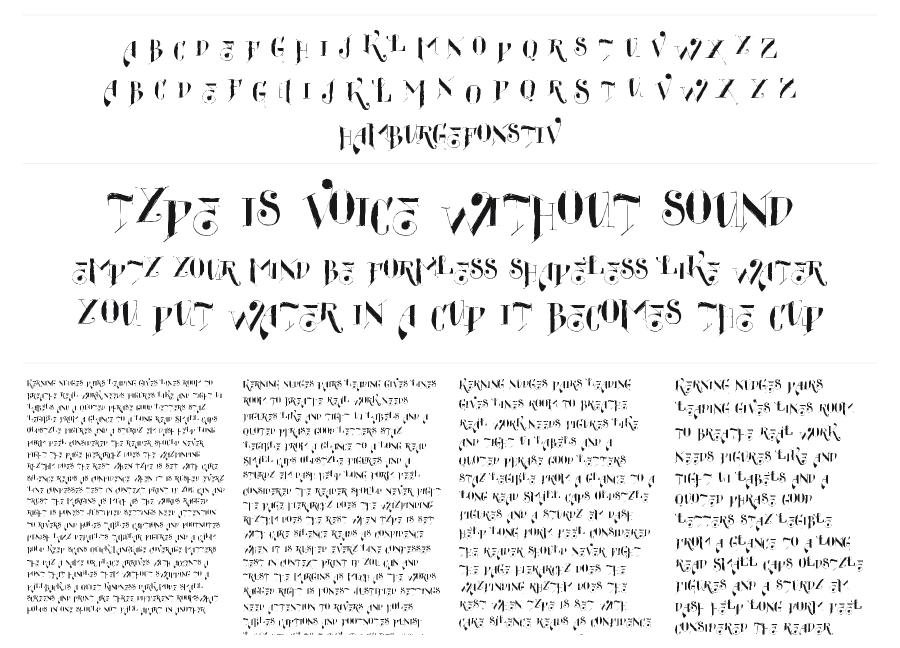 A B C D E F G H I J K L M N O P Q R S T U V W X Y Z
A B C D E F G H I J K L M N O P Q R S T U V W X Y Z
HAMBURGEFONSTIV
TYPE IS VOICE WITHOUT SOUND
EMPTY YOUR MIND BE FORMLESS SHAPELESS LIKE WATER
YOU PUT WATER IN A CUP IT BECOMES THE CUP
KERNING NUDGES PAIRS LEADING GIVES LINES ROOM TO
BREATHE REAL WORK NEEDS FIGURES LIKE AND TIGHT UI
LABELS AND A QUOTED PHRASE GOOD LETTERS STAY
LEGIBLE FROM A GLANCE TO A LONG READ SMALL CAPS
OLDSTYLE FIGURES AND A STURDY EM DASH HELP LONG
FORM FEEL CONSIDERED THE READER SHOULD NEVER
FIGHT THE PAGE HIERARCHY DOES THE WAYFINDING
RHYTHM DOES THE REST WHEN TYPE IS SET WITH CARE
SILENCE READS AS CONFIDENCE WHEN IT IS RUSHED EVERY
LINE CONFESSES TEST IN CONTEXT PRINT IF YOU CAN AND
TRUST THE MARGINS AS MUCH AS THE WORDS RAGGED
RIGHT IS HONEST JUSTIFIED SETTINGS NEED ATTENTION
TO RIVERS AND HOLES TABLES CAPTIONS AND FOOTNOTES
PUNISH LAZY DEFAULTS TABULAR FIGURES AND A CALM
BOLD KEEP SCANS QUICK LANGUAGE COVERAGE MATTERS
THE DAY A NAME OR PLACE ARRIVES WITH ACCENTS A
FONT THAT HANDLES THEM WITHOUT SWAPPING TO A
FALLBACK IS A QUIET KINDNESS DARK MODE SMALL
SCREENS AND PRINT ARE THREE DIFFERENT ROOMS WHAT
HOLDS IN ONE SHOULD NOT FALL APART IN ANOTHER
KERNING NUDGES PAIRS LEADING GIVES LINES
ROOM TO BREATHE REAL WORK NEEDS
FIGURES LIKE AND TIGHT UI LABELS AND A
QUOTED PHRASE GOOD LETTERS STAY
LEGIBLE FROM A GLANCE TO A LONG READ
SMALL CAPS OLDSTYLE FIGURES AND A
STURDY EM DASH HELP LONG FORM FEEL
CONSIDERED THE READER SHOULD NEVER FIGHT
THE PAGE HIERARCHY DOES THE WAYFINDING
RHYTHM DOES THE REST WHEN TYPE IS SET
WITH CARE SILENCE READS AS CONFIDENCE
WHEN IT IS RUSHED EVERY LINE CONFESSES
TEST IN CONTEXT PRINT IF YOU CAN AND
TRUST THE MARGINS AS MUCH AS THE WORDS
RAGGED RIGHT IS HONEST JUSTIFIED SETTINGS
NEED ATTENTION TO RIVERS AND HOLES
TABLES CAPTIONS AND FOOTNOTES PUNISH
KERNING NUDGES PAIRS LEADING
GIVES LINES ROOM TO BREATHE
REAL WORK NEEDS FIGURES LIKE
AND TIGHT UI LABELS AND A
QUOTED PHRASE GOOD LETTERS
STAY LEGIBLE FROM A GLANCE TO A
LONG READ SMALL CAPS OLDSTYLE
FIGURES AND A STURDY EM DASH
HELP LONG FORM FEEL CONSIDERED
THE READER SHOULD NEVER FIGHT
THE PAGE HIERARCHY DOES THE
WAYFINDING RHYTHM DOES THE
REST WHEN TYPE IS SET WITH
CARE SILENCE READS AS CONFIDENCE
KERNING NUDGES PAIRS
LEADING GIVES LINES ROOM
TO BREATHE REAL WORK
NEEDS FIGURES LIKE AND
TIGHT UI LABELS AND A
QUOTED PHRASE GOOD
LETTERS STAY LEGIBLE
FROM A GLANCE TO A LONG
READ SMALL CAPS OLDSTYLE
FIGURES AND A STURDY EM
DASH HELP LONG FORM FEEL
CONSIDERED THE READER